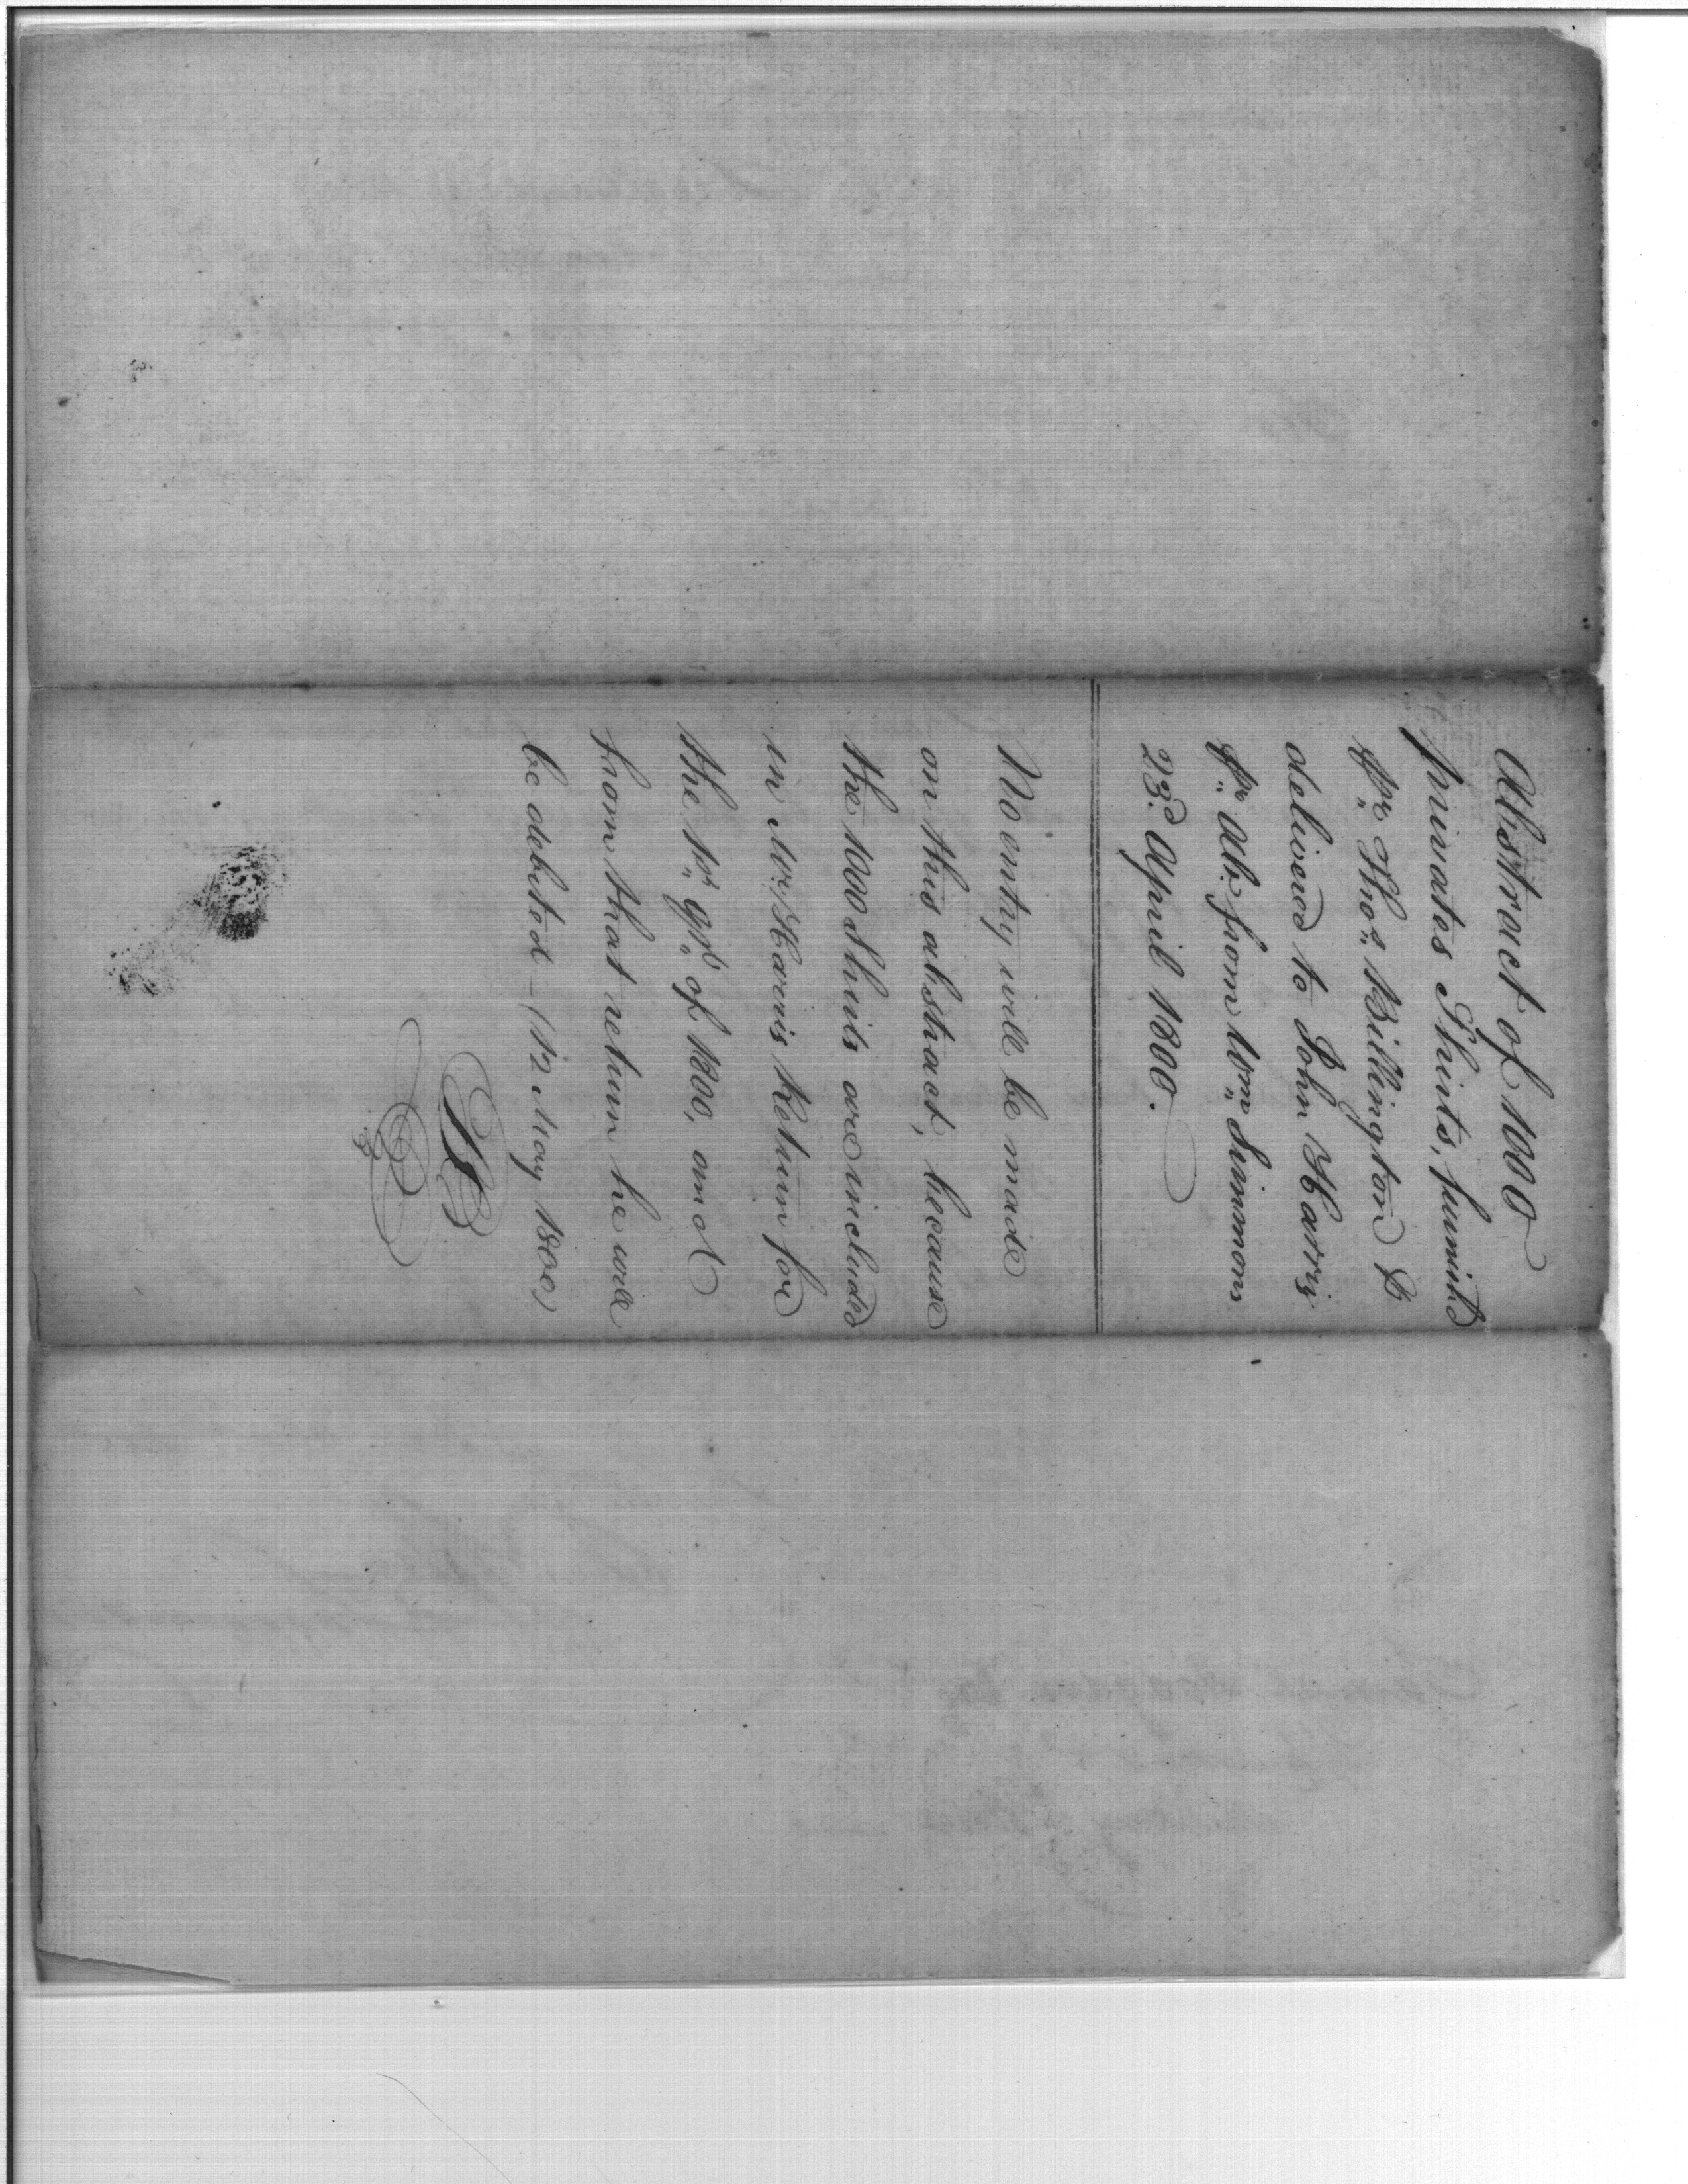 Abstract of 1000
privates Shirts, furnishd
pr. Thos. Billington &
delivered to John Harris
pr. Ab. from Wm. Simmons
23d. April 1800.
No entry will be made
on this abstract, because
the 1000 Shirts are included
in Mr. Harris Return for
the 1st qr. of 1800, and
from that return he will
be debited – (12 May 1800)